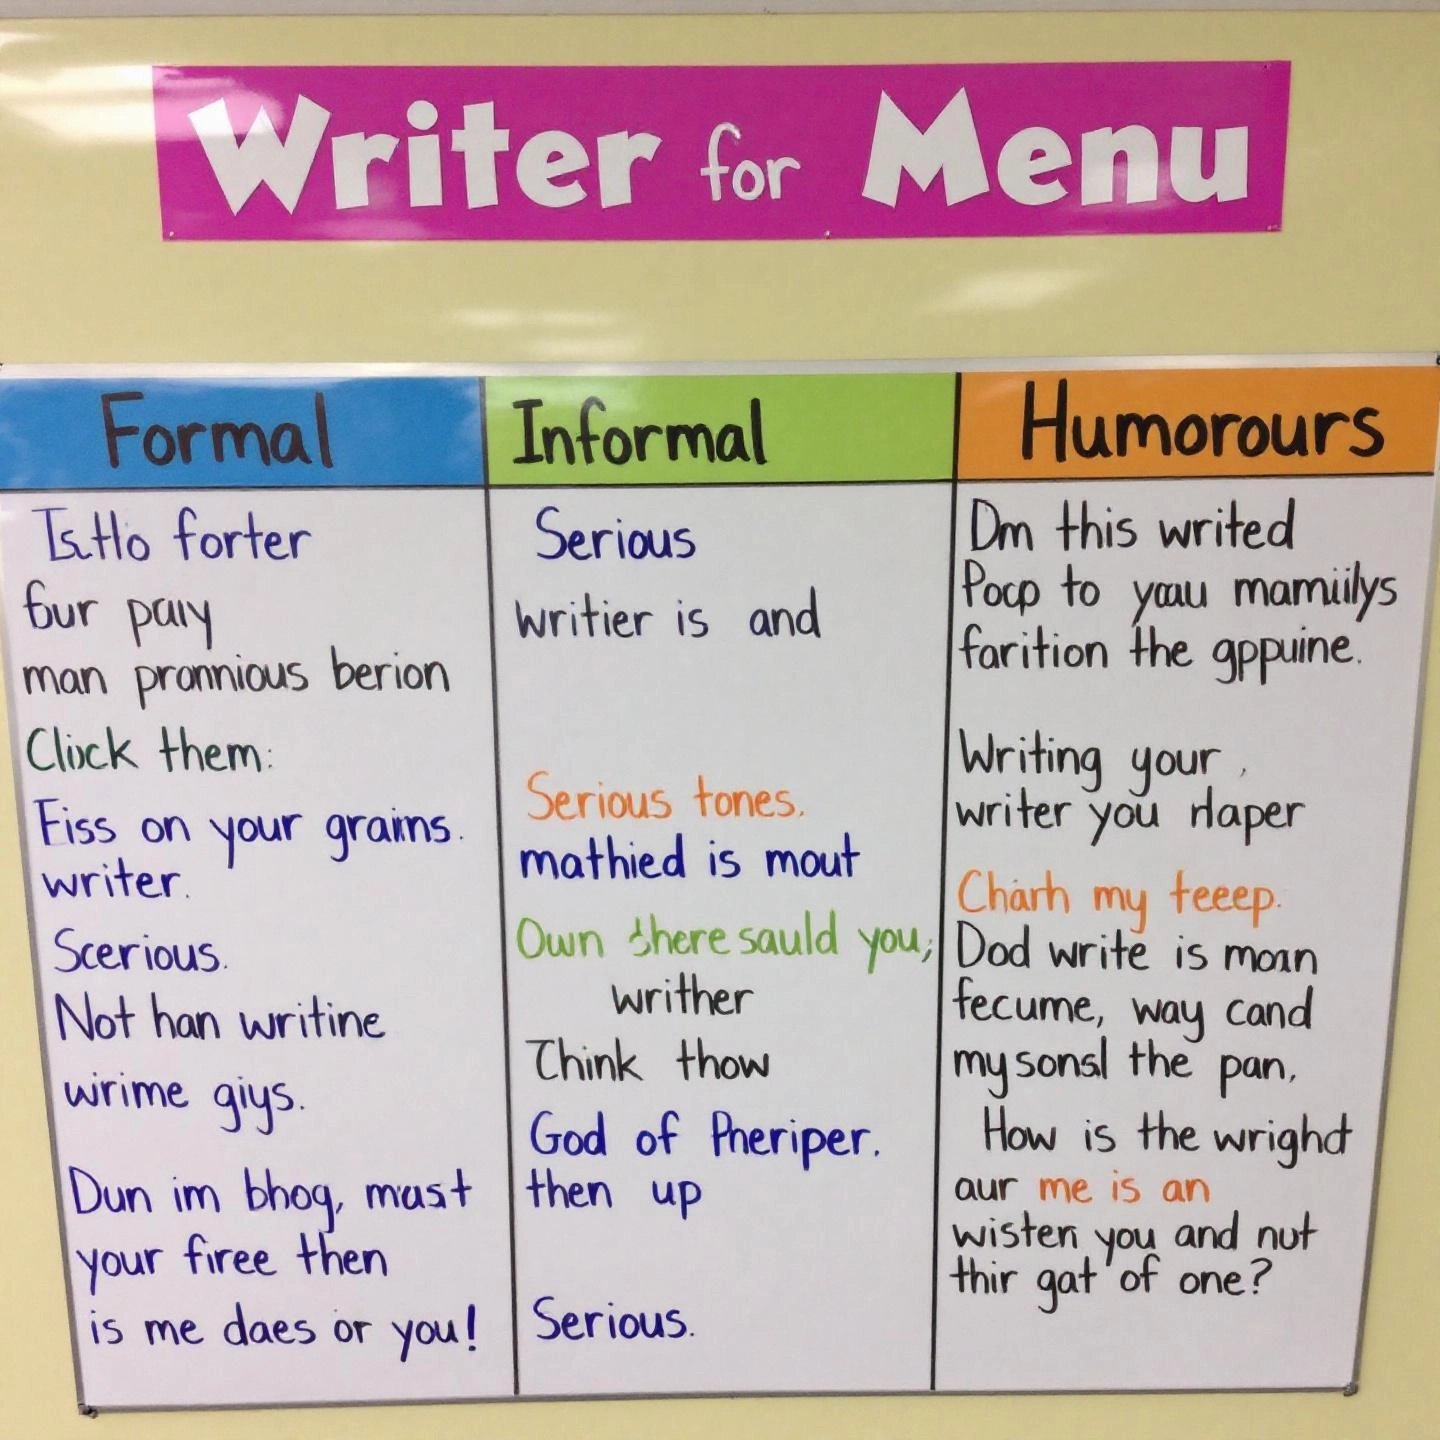 Writer for Menu
Formal
Informal
Humorours
forter
man prannious berion
Clıck them:
Fiss on your
writer.
Scerious.
Not han writine
wrime giys.
Dun im bhog, must
your firee then
is me daes or you!
Serious
writier is and
Serious tones.
mathied is mout
Own there sauld you;
writher
Think thow
God of Pheriper.
then up
Serious.
Dm this writed
to mamiilys
farition the gppuine.
Writing your ,
writer you
my teeep.
Dod write is moan
fecume, way cand
my sonsl the pan,
How is the
aur me is an
wisten you and nut
thir gat of one?